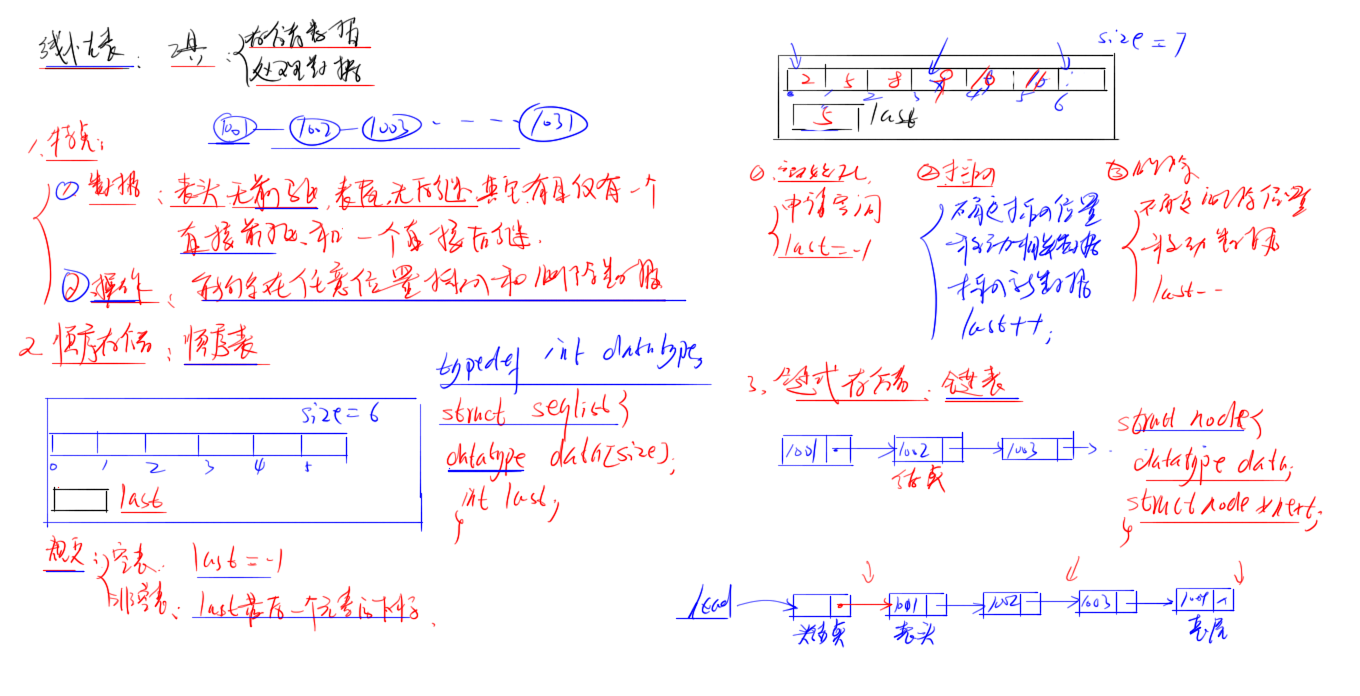 线性表: 工具: 存储数据
处理数据
1001 1002 1003 1031
1、特点:
① 数据: 表头无前驱、表尾无后继,其它有且仅有一个
直接前驱、和一个直接后继.
② 操作: 我们能在任意位置插入和删除数据
2 顺序存储: 顺序表
typedef int datatype;
struct seqlist{
datatype data[size];
int last;
}
size = 6
0 1 2 3 4 5
last
规定: 空表: last = -1
非空表: last最后一个元素的下标.
size = 7
2 5 8
0 1 2 3 4 5 6
5 last
① 初始化
申请空间
last = -1
② 插入
确定插入位置
移动相关数据
插入新数据
last++;
③ 删除
确定删除位置
移动数据
last--
3、链式存储: 链表
1001 1002 1003
结点
struct node{
datatype data;
struct node *next;
}
head 1001 1002 1003 1004
头结点 表头 表尾